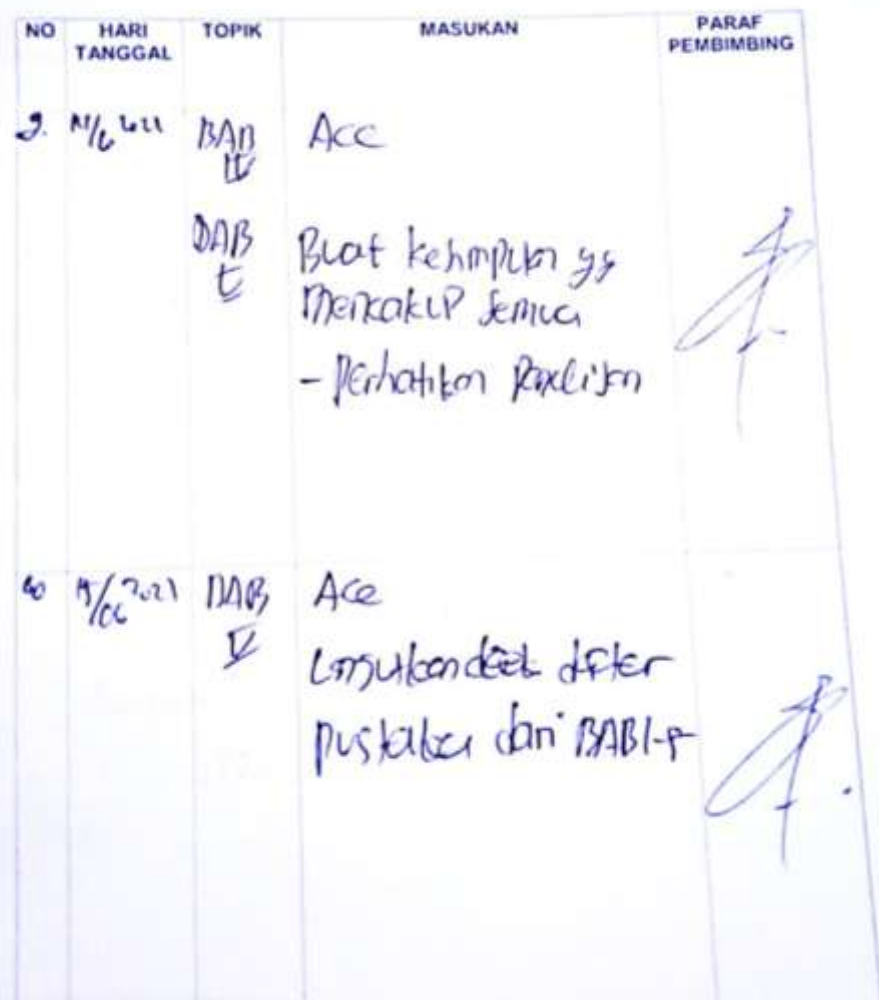 NO HARI TANGGAL TOPIK MASUKAN PARAF PEMBIMBING
BAB IV Acc
BAB V Buat kesimpulan yg
mencakup semua
- Perhatikan Penulisan
/06 2021 BAB V Acc
daftar
pustaka dari BAB I-